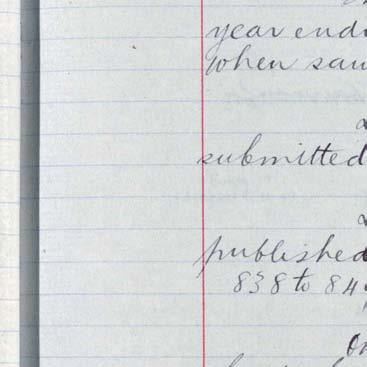 year end
when sa
submitted
published
838 to 84
On